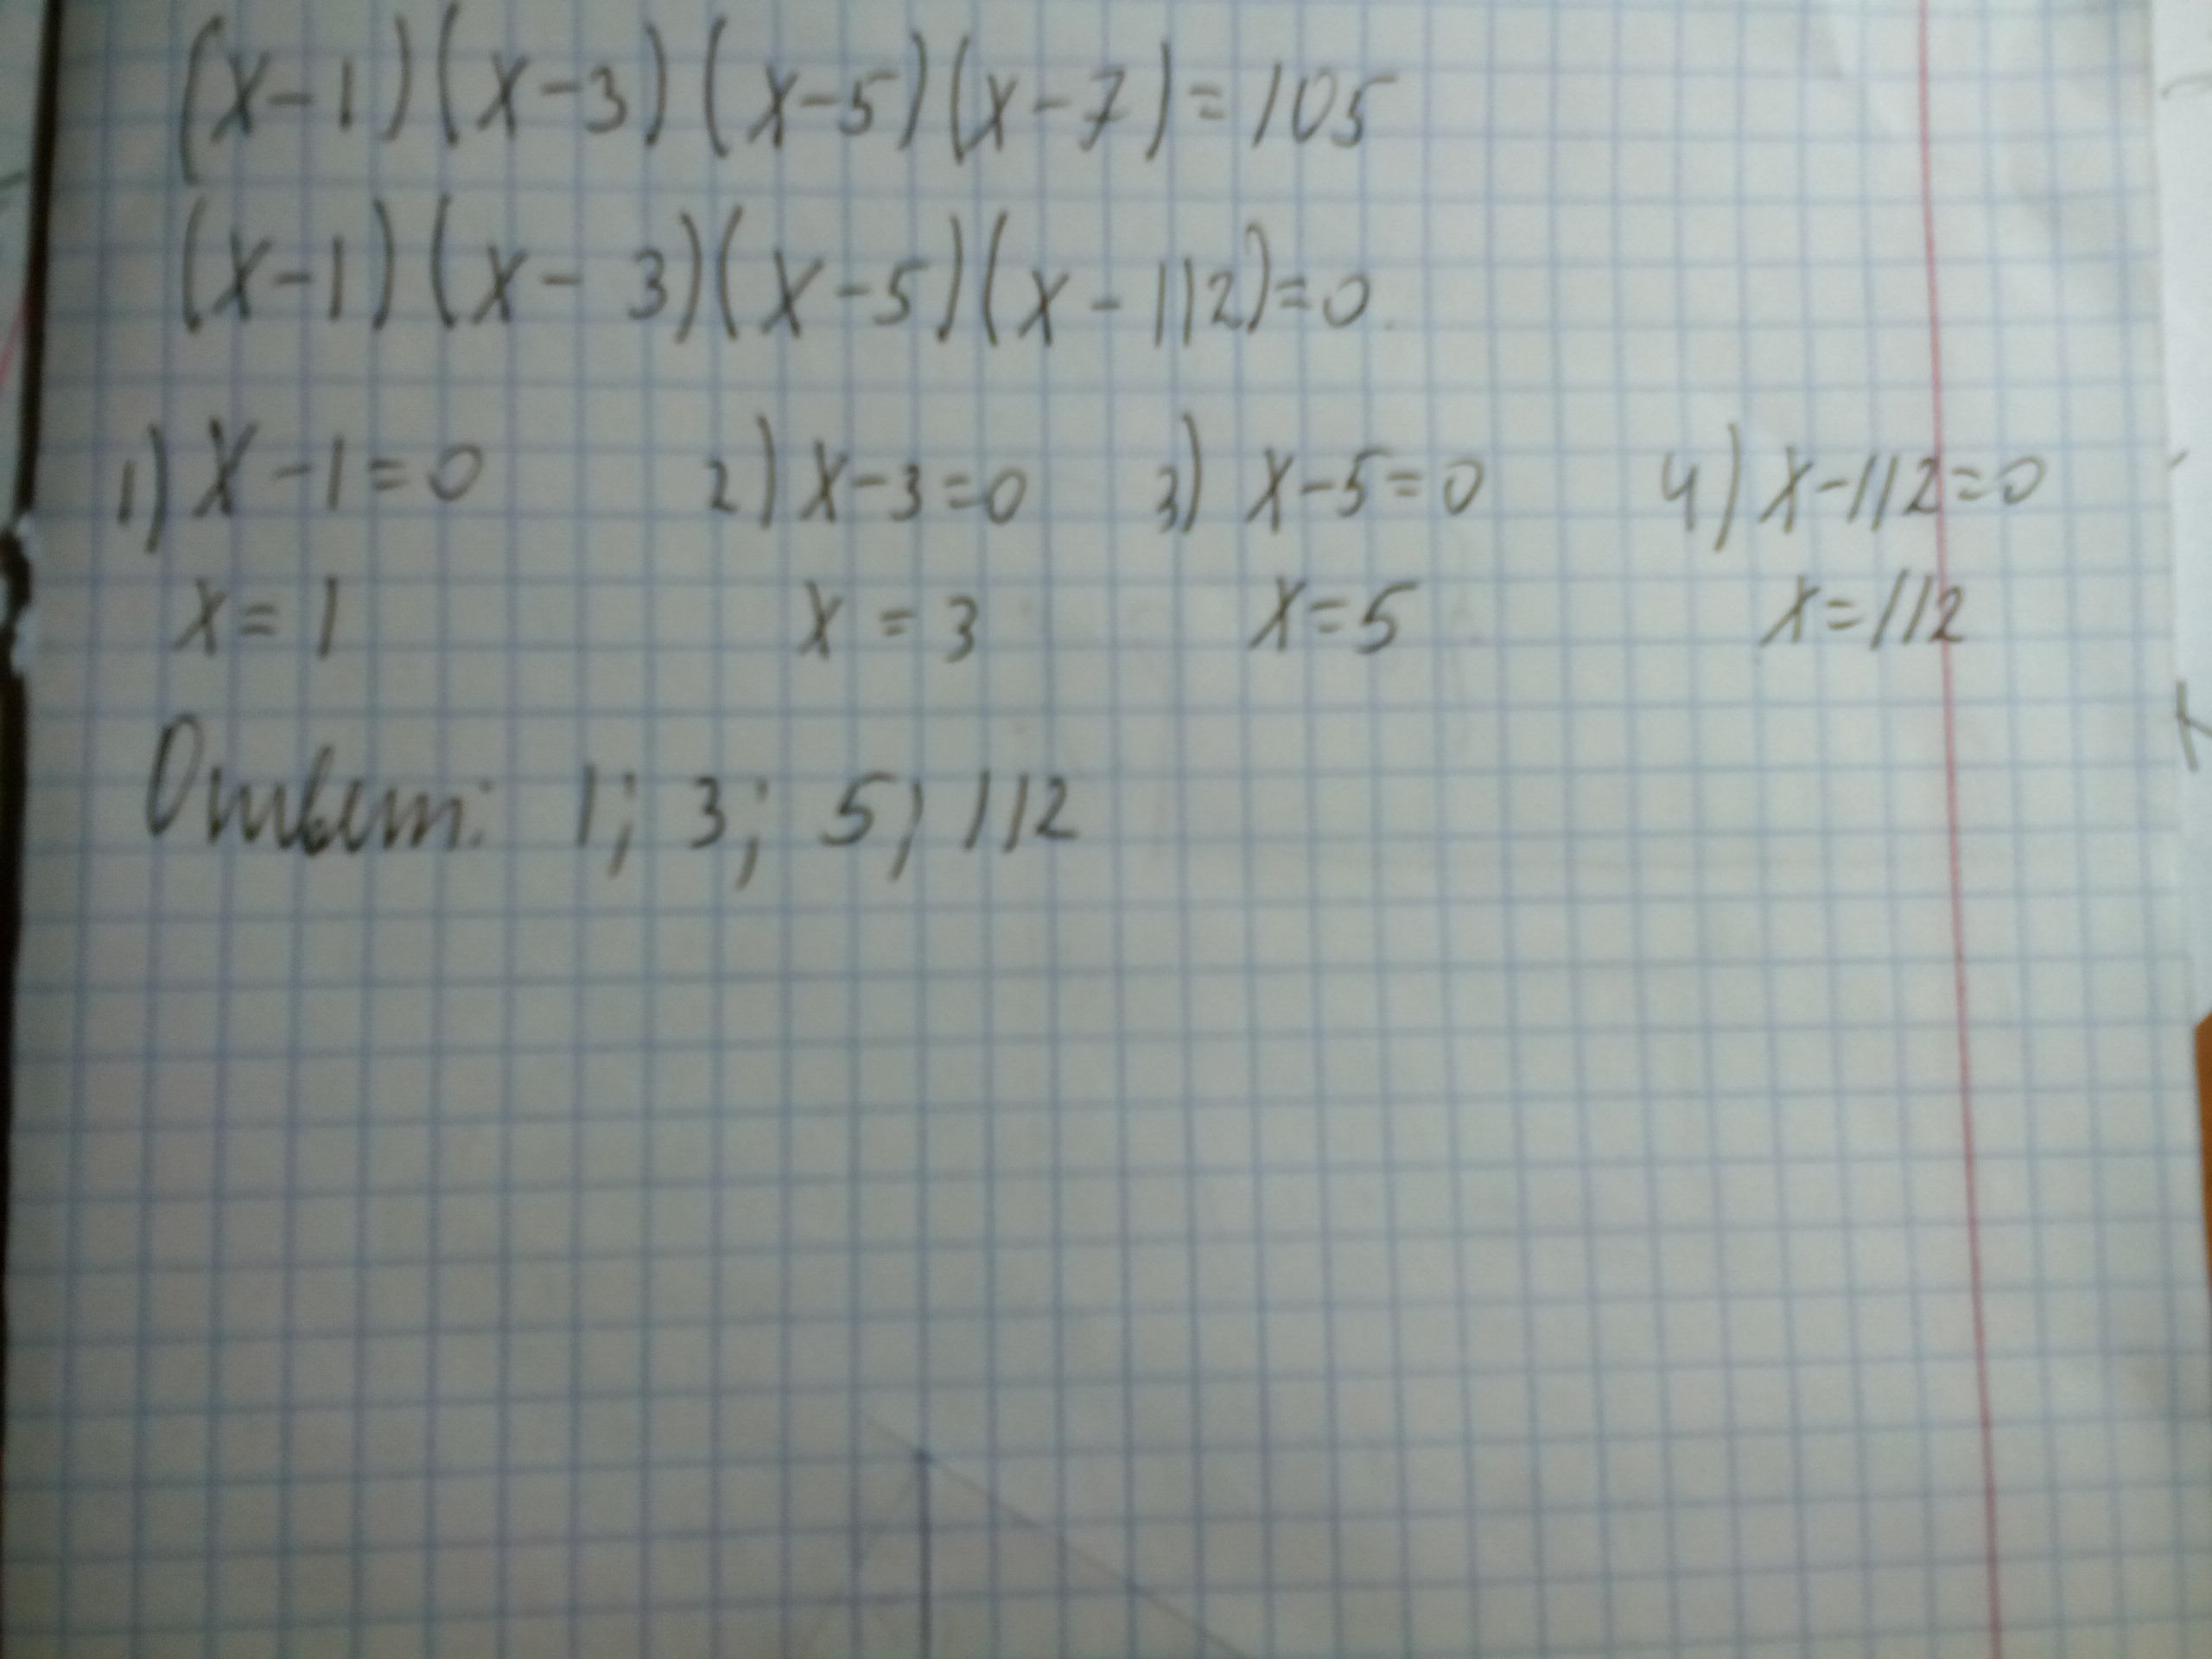 (x-1)(x-3)(x-5)(x-7)=105
(x-1)(x-3)(x-5)(x-112)=0.
1) x-1=0 2) x-3=0 3) x-5=0 4) x-112=0
x=1 x=3 x=5 x=112
Ответ: 1; 3; 5; 112